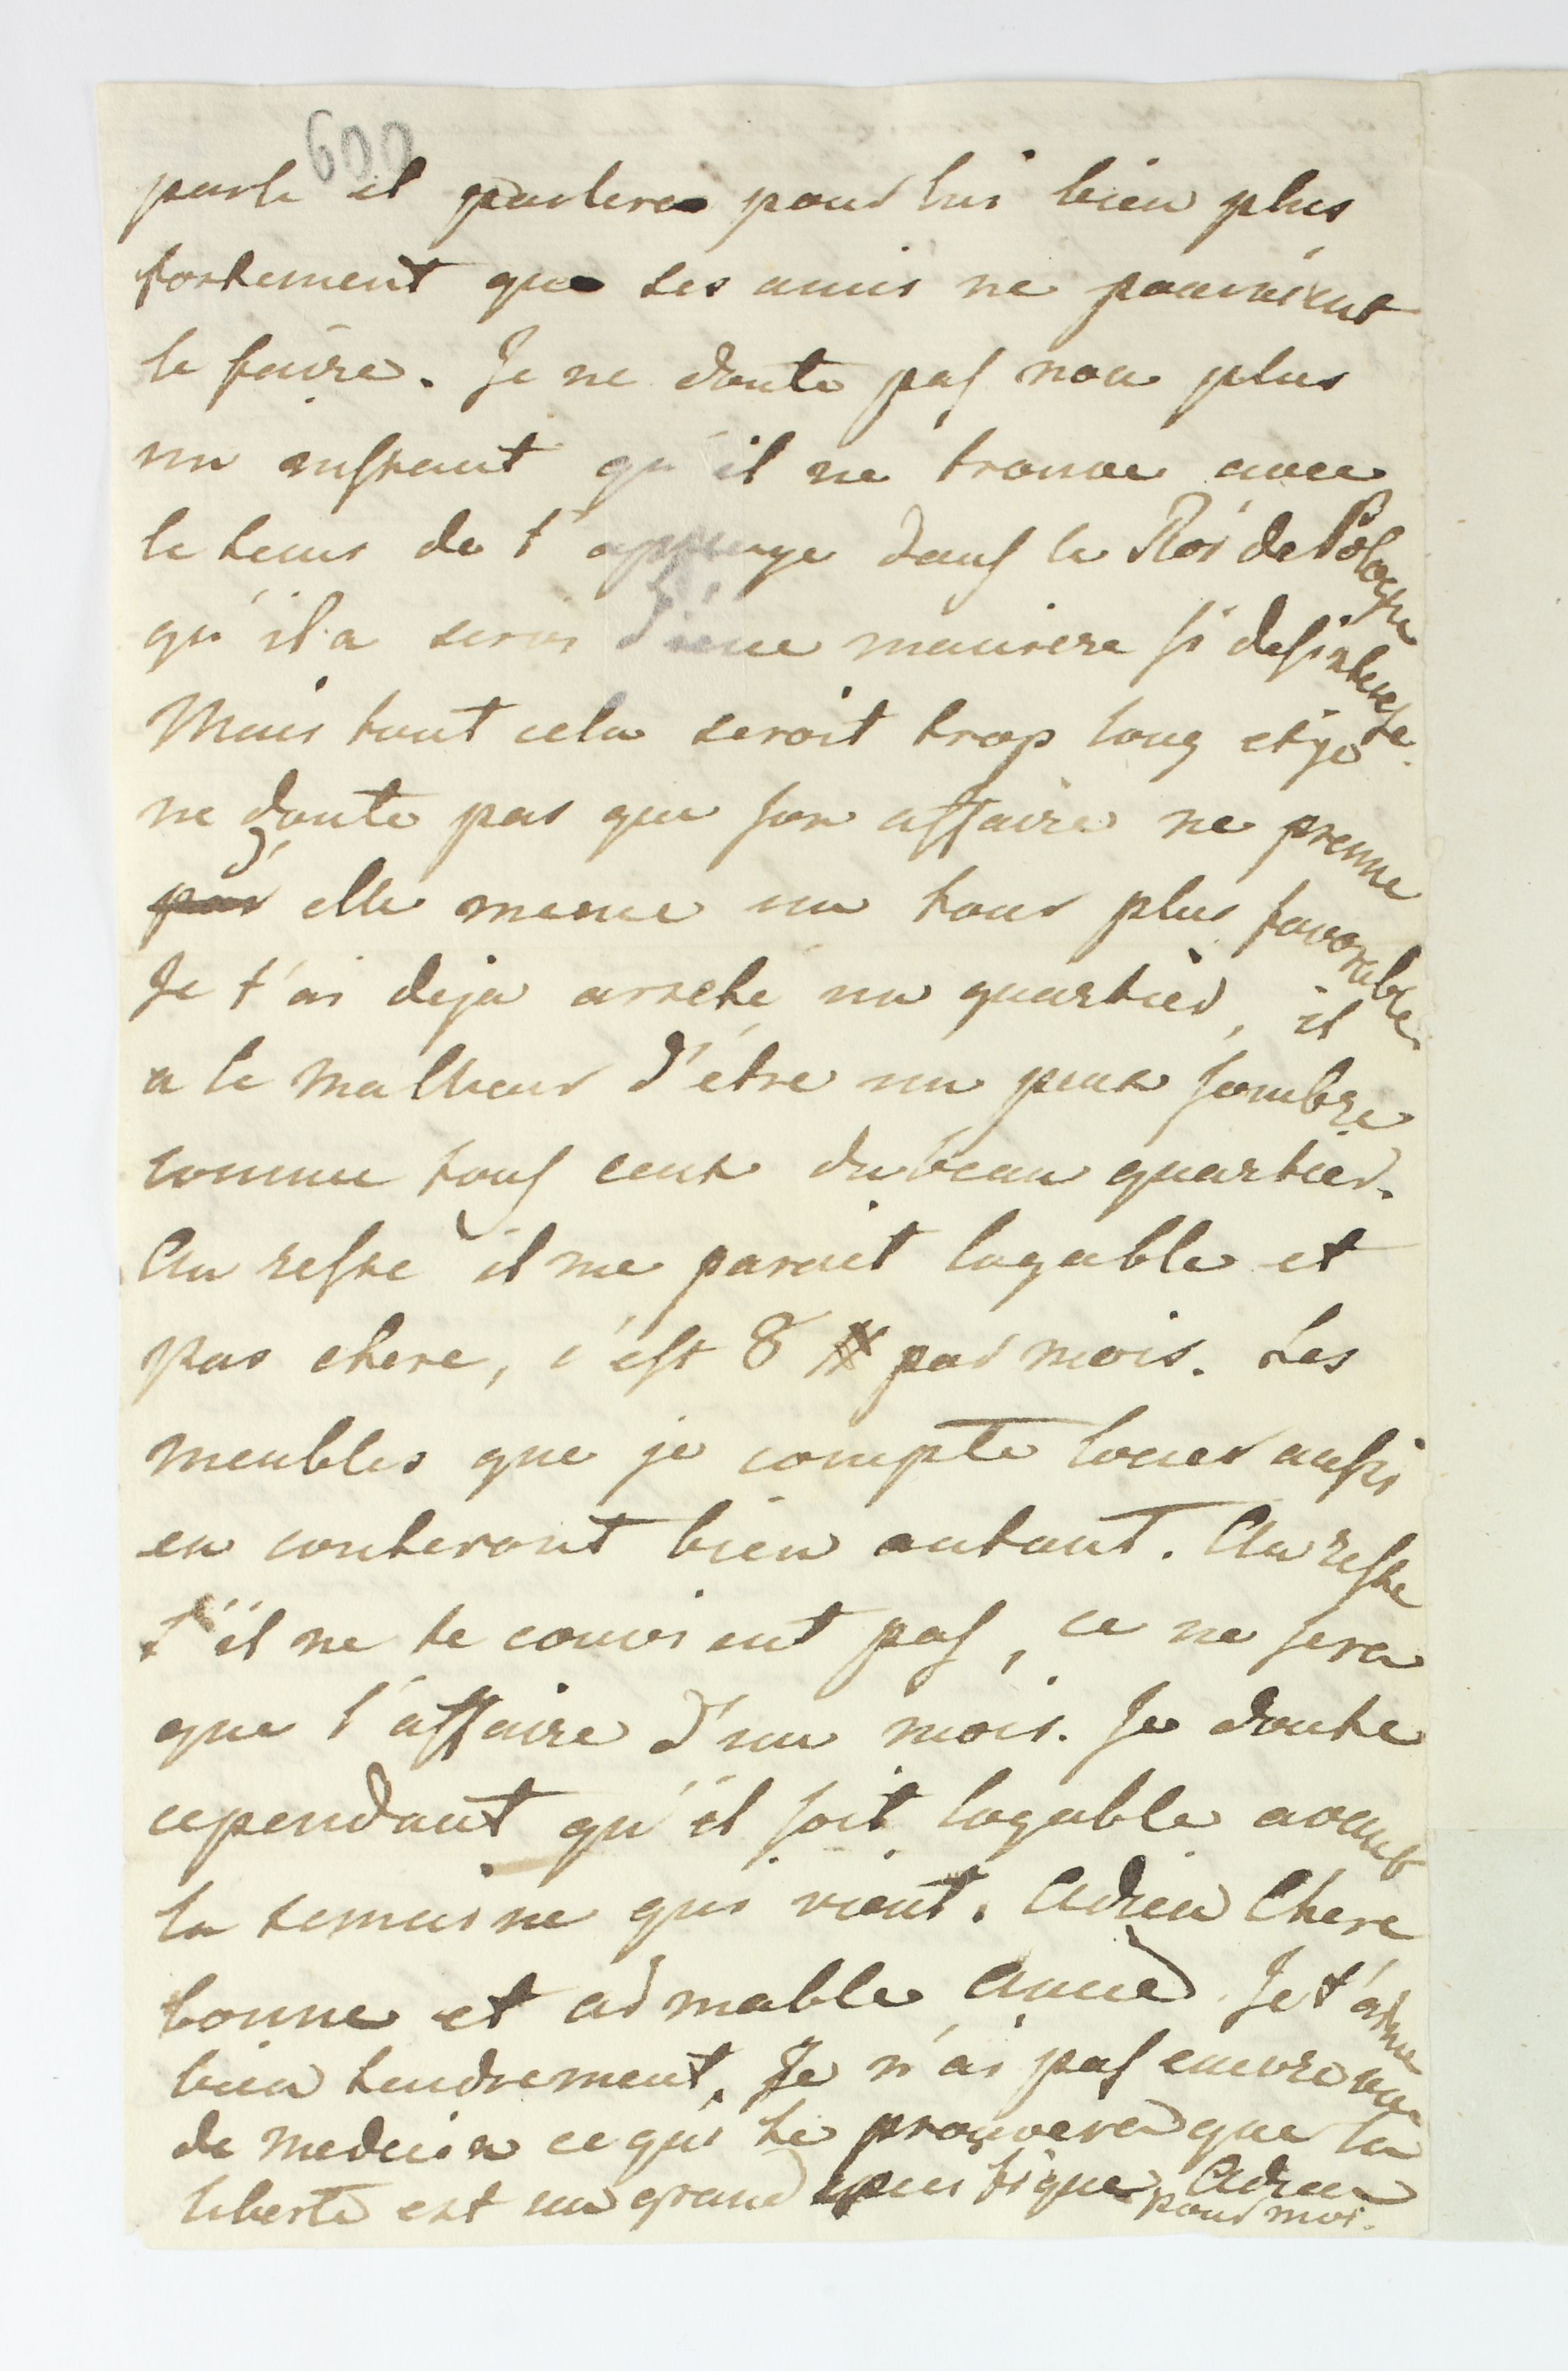 600
parle il parlera pour lui bien plus
fortement que ses amis ne pouroient
le faire. Je ne doute pas non plus
un instant qu'il ne trouve avec
le tems de l'appuye dans le Roi de Pologne
qu'il a servi d'une maniere si desinteresse.
Mais tout cela seroit trop long et je
ne doute pas que son affaire ne prenne
par d'elle meme un tour plus favorable.
Je t'ai deja arreté un quartier, il
a le malheur d'être un peux sombre
comme tous ceux du beau quartier.
Au reste il me parait logable et
pas chere, c'est 8 # par mois. Les
meubles que je compte louer aussi
en couteront bien autant. Au reste
s'il ne te convient pas, ce ne sera
que l'affaire d'un mois. Je doute
cependant qu'il soit logable avant
la semaine qui vient. Adieu Chere
bonne et aimable amie. Je t'aime
bien tendrement. Je n'ai pas encore vu
de medecin ce qui te prouvera que la
liberté est un grand specifique pour moi.
Adieu